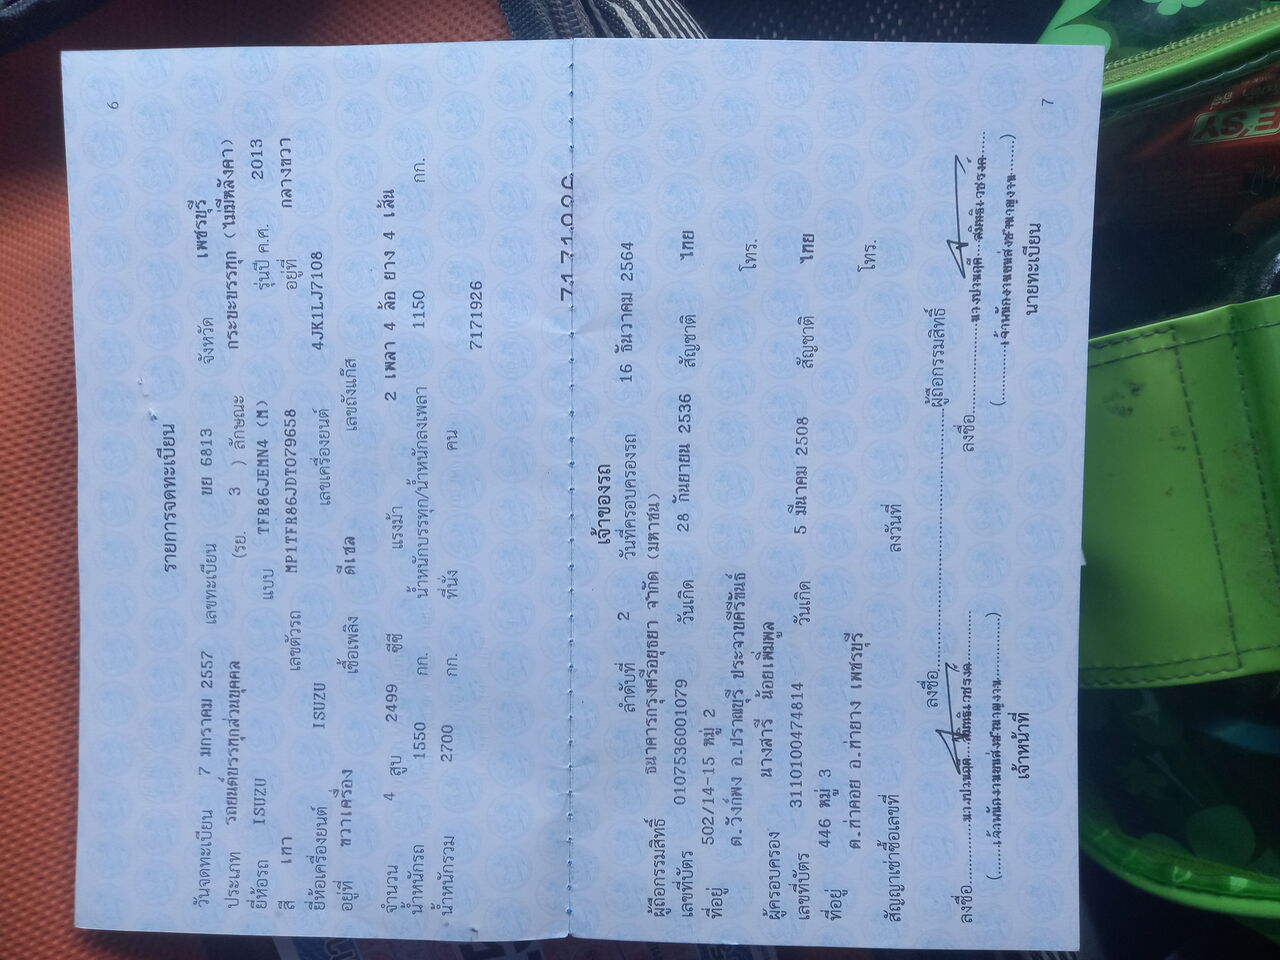 6
รายการจดทะเบียน
วันจดทะเบียน 7 มกราคม 2557 เลขทะเบียน ขย 6813 จังหวัด เพชรบุรี
ประเภท รถยนต์บรรทุกส่วนบุคคล (รย. 3 ) ลักษณะ กระบะบรรทุก (ไม่มีหลังคา)
ยี่ห้อรถ ISUZU แบบ TFR86JEMN4 (M) รุ่นปี ค.ศ. 2013
สี เทา เลขตัวรถ MP1TFR86JDT079658 อยู่ที่ กลางขวา
ยี่ห้อเครื่องยนต์ ISUZU เลขเครื่องยนต์ 4JK1LJ7108
อยู่ที่ ขวาเครื่อง เชื้อเพลิง ดีเซล เลขถังแก๊ส
จำนวน 4 สูบ 2499 ซีซี แรงม้า 2 เพลา 4 ล้อ ยาง 4 เส้น
น้ำหนักรถ 1550 กก. น้ำหนักบรรทุก/น้ำหนักลงเพลา 1150 กก.
น้ำหนักรวม 2700 กก. ที่นั่ง คน 7171926
เจ้าของรถ
ลำดับที่ 2 วันที่ครอบครองรถ 16 ธันวาคม 2564
ผู้ถือกรรมสิทธิ์ ธนาคารกรุงศรีอยุธยา จำกัด (มหาชน)
เลขที่บัตร 0107536001079 วันเกิด 28 กันยายน 2536 สัญชาติ ไทย
ที่อยู่ 502/14-15 หมู่ 2
ต.วังก์พง อ.ปราณบุรี ประจวบคีรีขันธ์ โทร.
ผู้ครอบครอง นางสารี น้อยเพิ่มพูล
เลขที่บัตร 3110100474814 วันเกิด 5 มีนาคม 2508 สัญชาติ ไทย
ที่อยู่ 446 หมู่ 3
ต.ท่าคอย อ.ท่ายาง เพชรบุรี โทร.
สัญญาเช่าซื้อเลขที่ ลงวันที่
ลงชื่อ ผู้ถือกรรมสิทธิ์
ลงชื่อ ลงชื่อ
เจ้าหน้าที่ นายทะเบียน
7